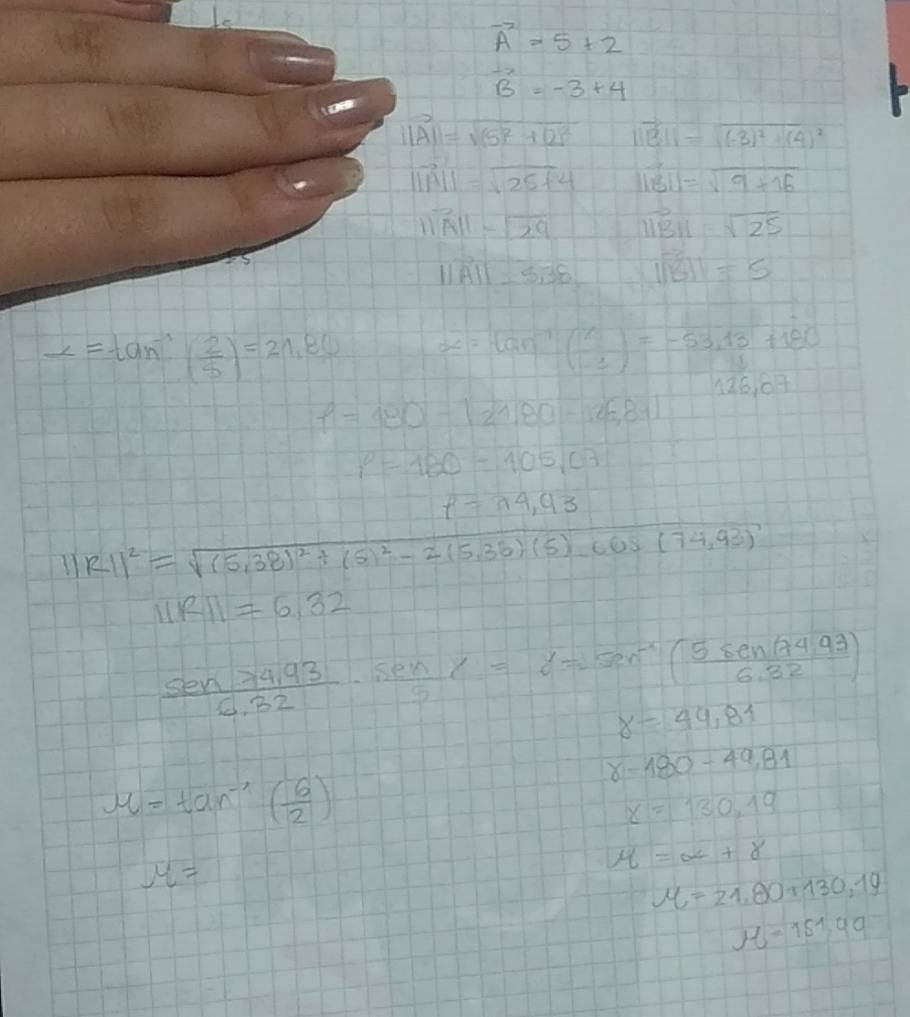 A⃗ = 5 + 2
B⃗ = -3 + 4
||A⃗|| = √(5)² + (2)² ||B⃗|| = √(-3)² + (4)²
||A⃗|| = √25+4 ||B⃗|| = √9+16
||A⃗|| = √29 ||B⃗|| = √25
||A⃗|| = 5,38 ||B⃗|| = 5
∝ = tan⁻¹ (2/5) = 21,80 ∝ = tan⁻¹ (4/-3) = -53,13 + 180
126,87
φ = 180 - |21,80 - 126,87|
φ = 180 - 105,07
φ = 74,93
||R||² = √(5,38)² + (5)² - 2(5,38)(5) cos (74,93)
||R|| = 6,32
sen 74,93/6.32 . sen γ/5 = γ = sen⁻¹ (5 sen(74,93)/6.32)
γ = 49,81
γ - 180 - 49,81
μ = tan⁻¹ (6/2)
γ = 130,19
μ = ∝ + γ
μ =
μ = 21,80 + 130,19
μ = 151,99